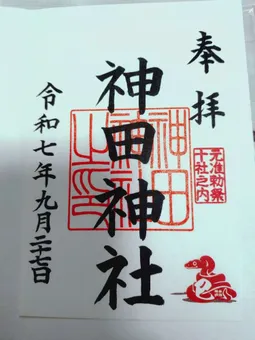 奉拝
元准勅祭
十社之内
神田神社
神田神社之印
令和七年九月二十七日